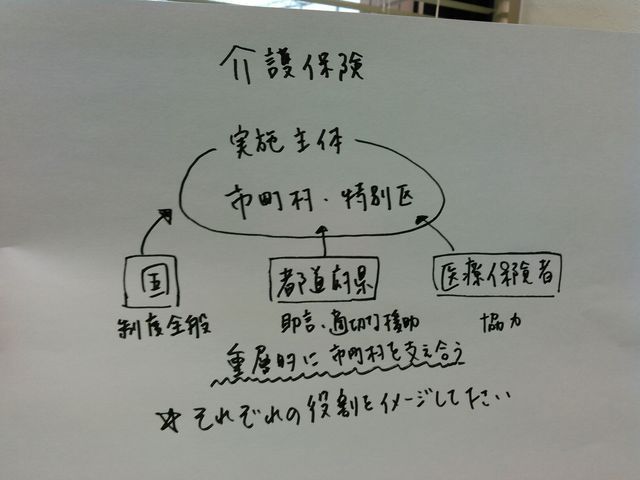 介護保険
実施主体
市町村・特別区
国
都道府県
医療保険者
制度全般
助言・適切な援助
協力
重層的に市町村を支え合う
☆それぞれの役割をイメージしてください